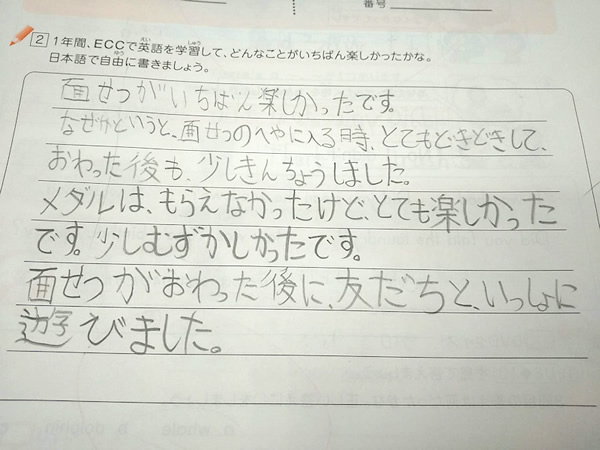 番号
2 1年間、ECCで英語を学習して、どんなことがいちばん楽しかったかな。
日本語で自由に書きましょう。
面せつがいちばん楽しかったです。
なぜかというと、面せつのへやに入る時、とてもどきどきして、
おわった後も、少しきんちょうしました。
メダルは、もらえなかったけど、とても楽しかった
です。少しむずかしかったです。
面せつがおわった後に、友だちと、いっしょに
遊びました。